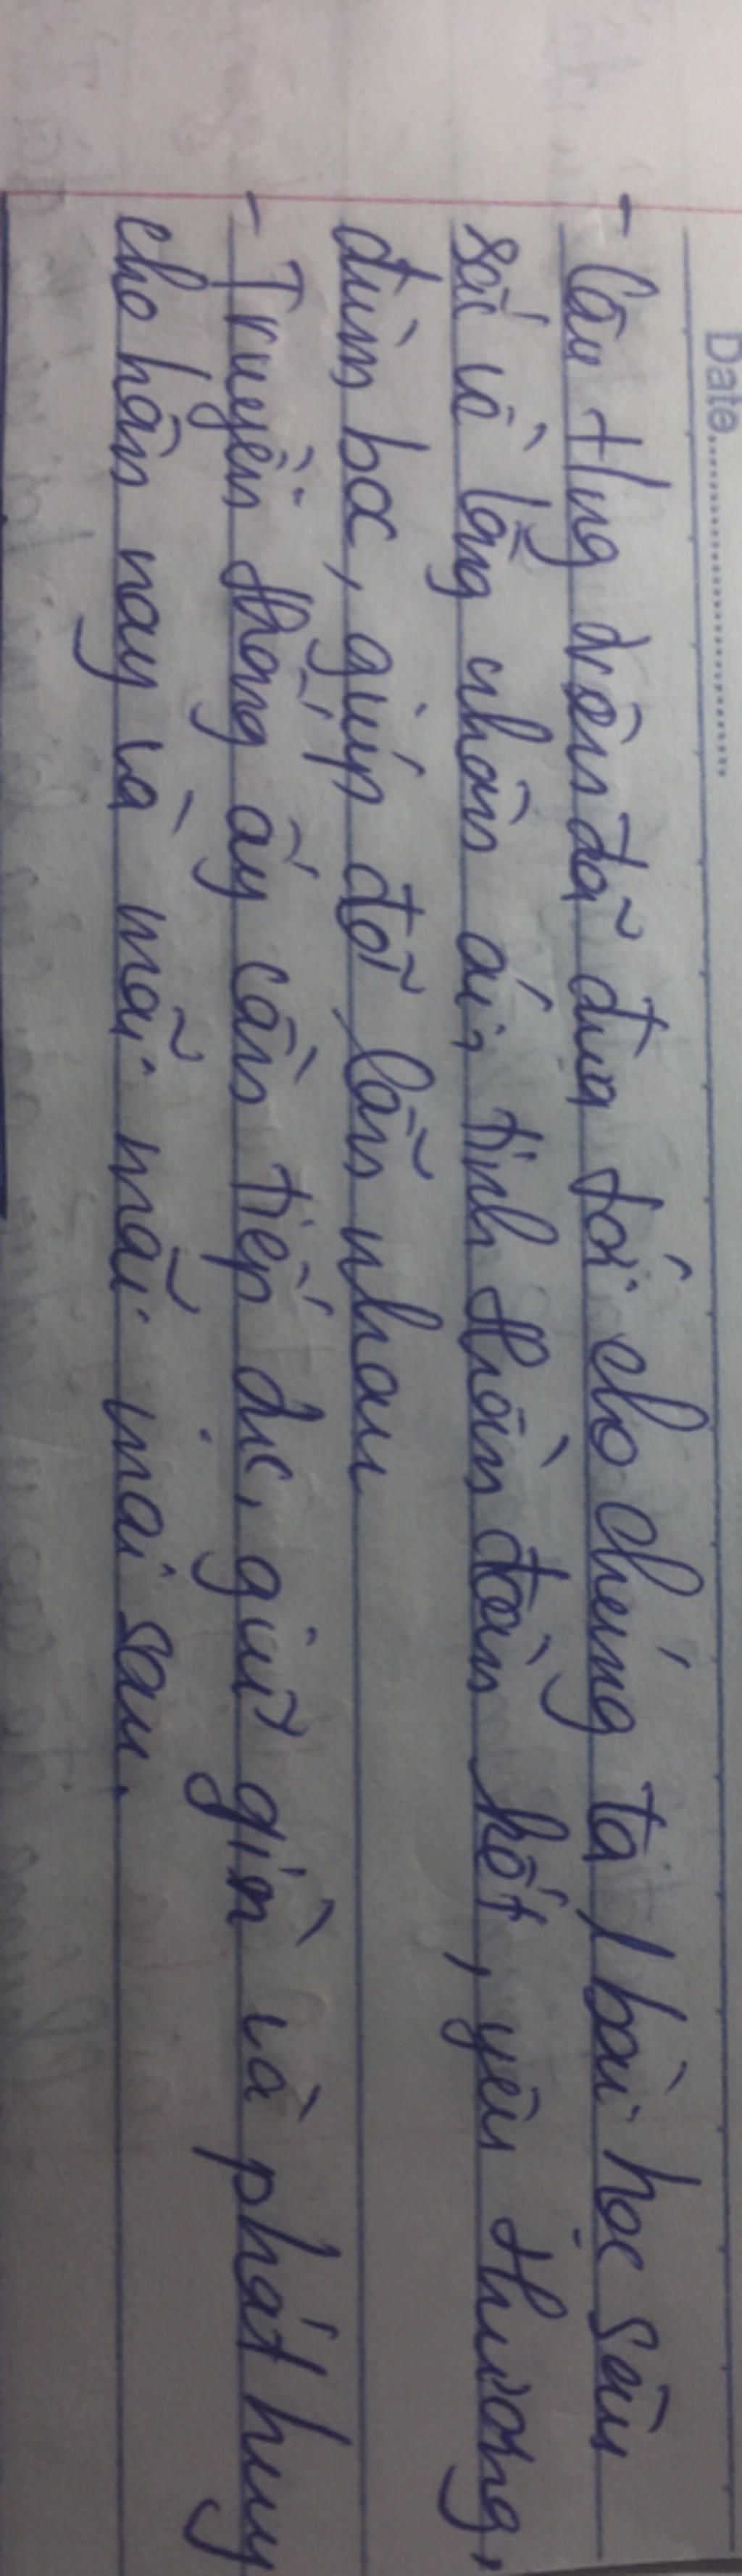 Date
- Câu tục ngữ trên đã đưa tới cho chúng ta 1 bài học sâu
sắc về lòng nhân ái, tinh thần đoàn kết, yêu thương,
đùm bọc, giúp đỡ lẫn nhau
- Truyền thống ấy cần tiếp tục, giữ gìn và phát huy
cho hôm nay và mãi mãi mai sau.